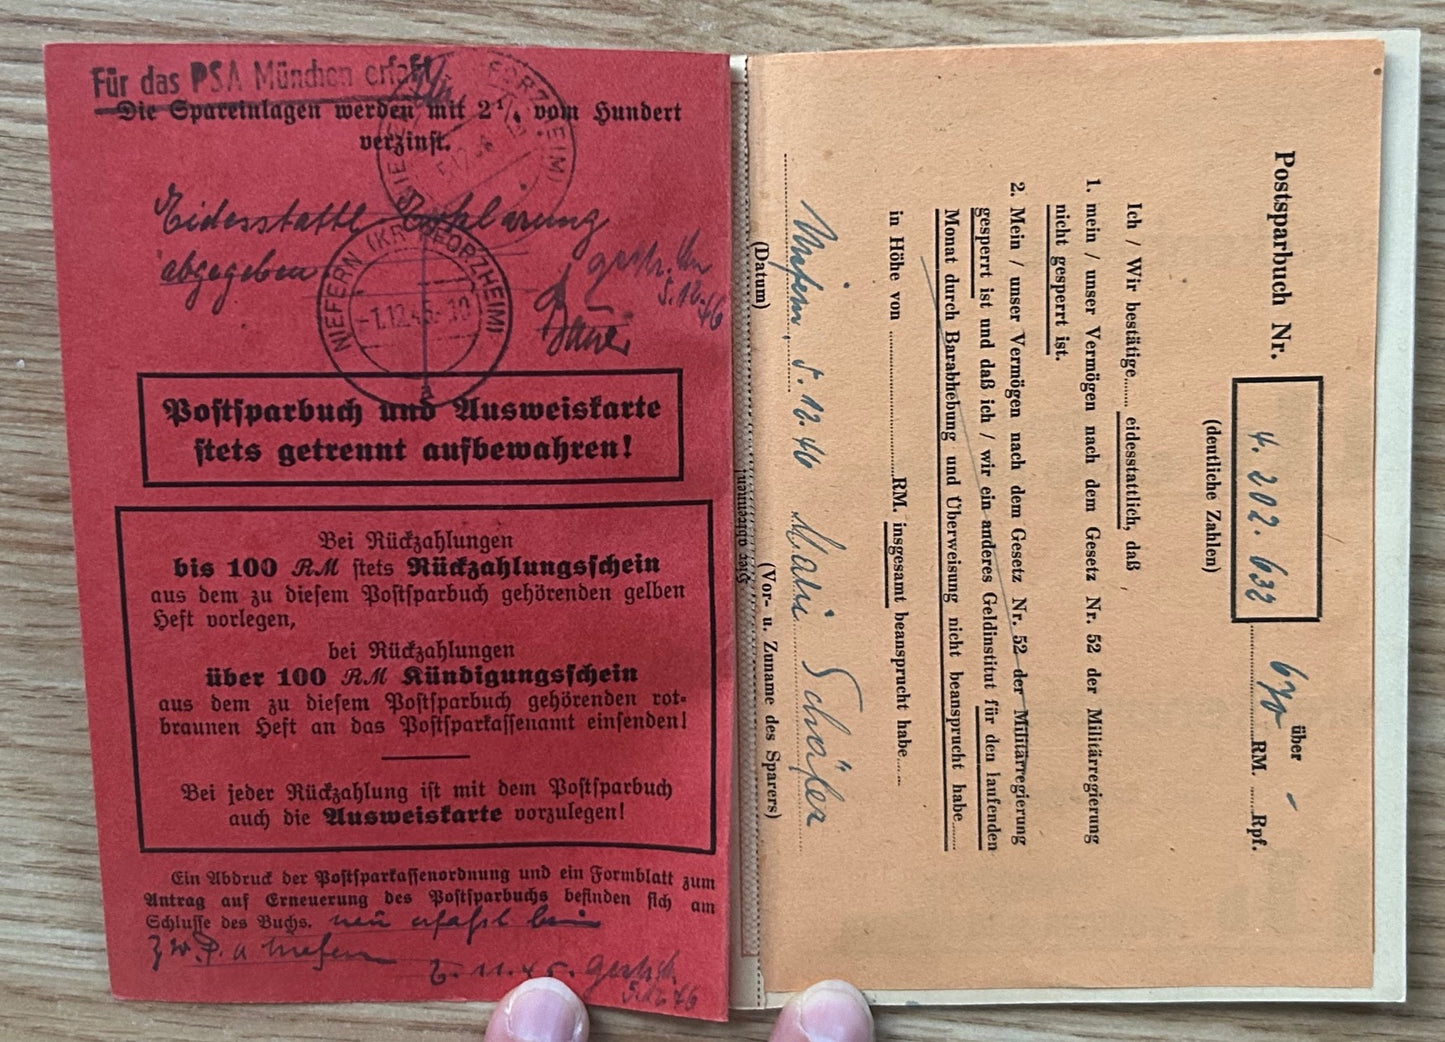 Für das PSA München erfaßt
Die Spareinlagen werden mit 2½ vom Hundert
verzinst.
NIEFERN (KR PFORZHEIM)
5.12.46
Eidesstattl Erklärung
abgegeben
5.12.46
NIEFERN (KR PFORZHEIM)
-1.12.45-10
a
Postsparbuch und Ausweiskarte
stets getrennt aufbewahren!
Bei Rückzahlungen
bis 100 RM stets Rückzahlungsschein
aus dem zu diesem Postsparbuch gehörenden gelben
Heft vorlegen,
bei Rückzahlungen
über 100 RM Kündigungsschein
aus dem zu diesem Postsparbuch gehörenden rot-
braunen Heft an das Postsparkassenamt einsenden!
Bei jeder Rückzahlung ist mit dem Postsparbuch
auch die Ausweiskarte vorzulegen!
Ein Abdruck der Postsparkassenordnung und ein Formblatt zum
Antrag auf Erneuerung des Postsparbuchs befinden sich am
Schlusse des Buchs. neu erfaßt beim
Zw. P. A Niefern
5.12.46
Postsparbuch Nr. 4.202.632 über 670 RM. - Rpf.
(deutliche Zahlen)
Ich / Wir bestätige...... eidesstattlich, daß
1. mein / unser Vermögen nach dem Gesetz Nr. 52 der Militärregierung
nicht gesperrt ist.
2. Mein / unser Vermögen nach dem Gesetz Nr. 52 der Militärregierung
gesperrt ist und daß ich / wir ein anderes Geldinstitut für den laufenden
Monat durch Barabhebung und Überweisung nicht beansprucht habe......
in Höhe von ............ RM. insgesamt beansprucht habe......
Niefern, 5.12.46 Marie Schäfer
(Datum) (Vor- u. Zuname des Sparers)
Hier abtrennen!